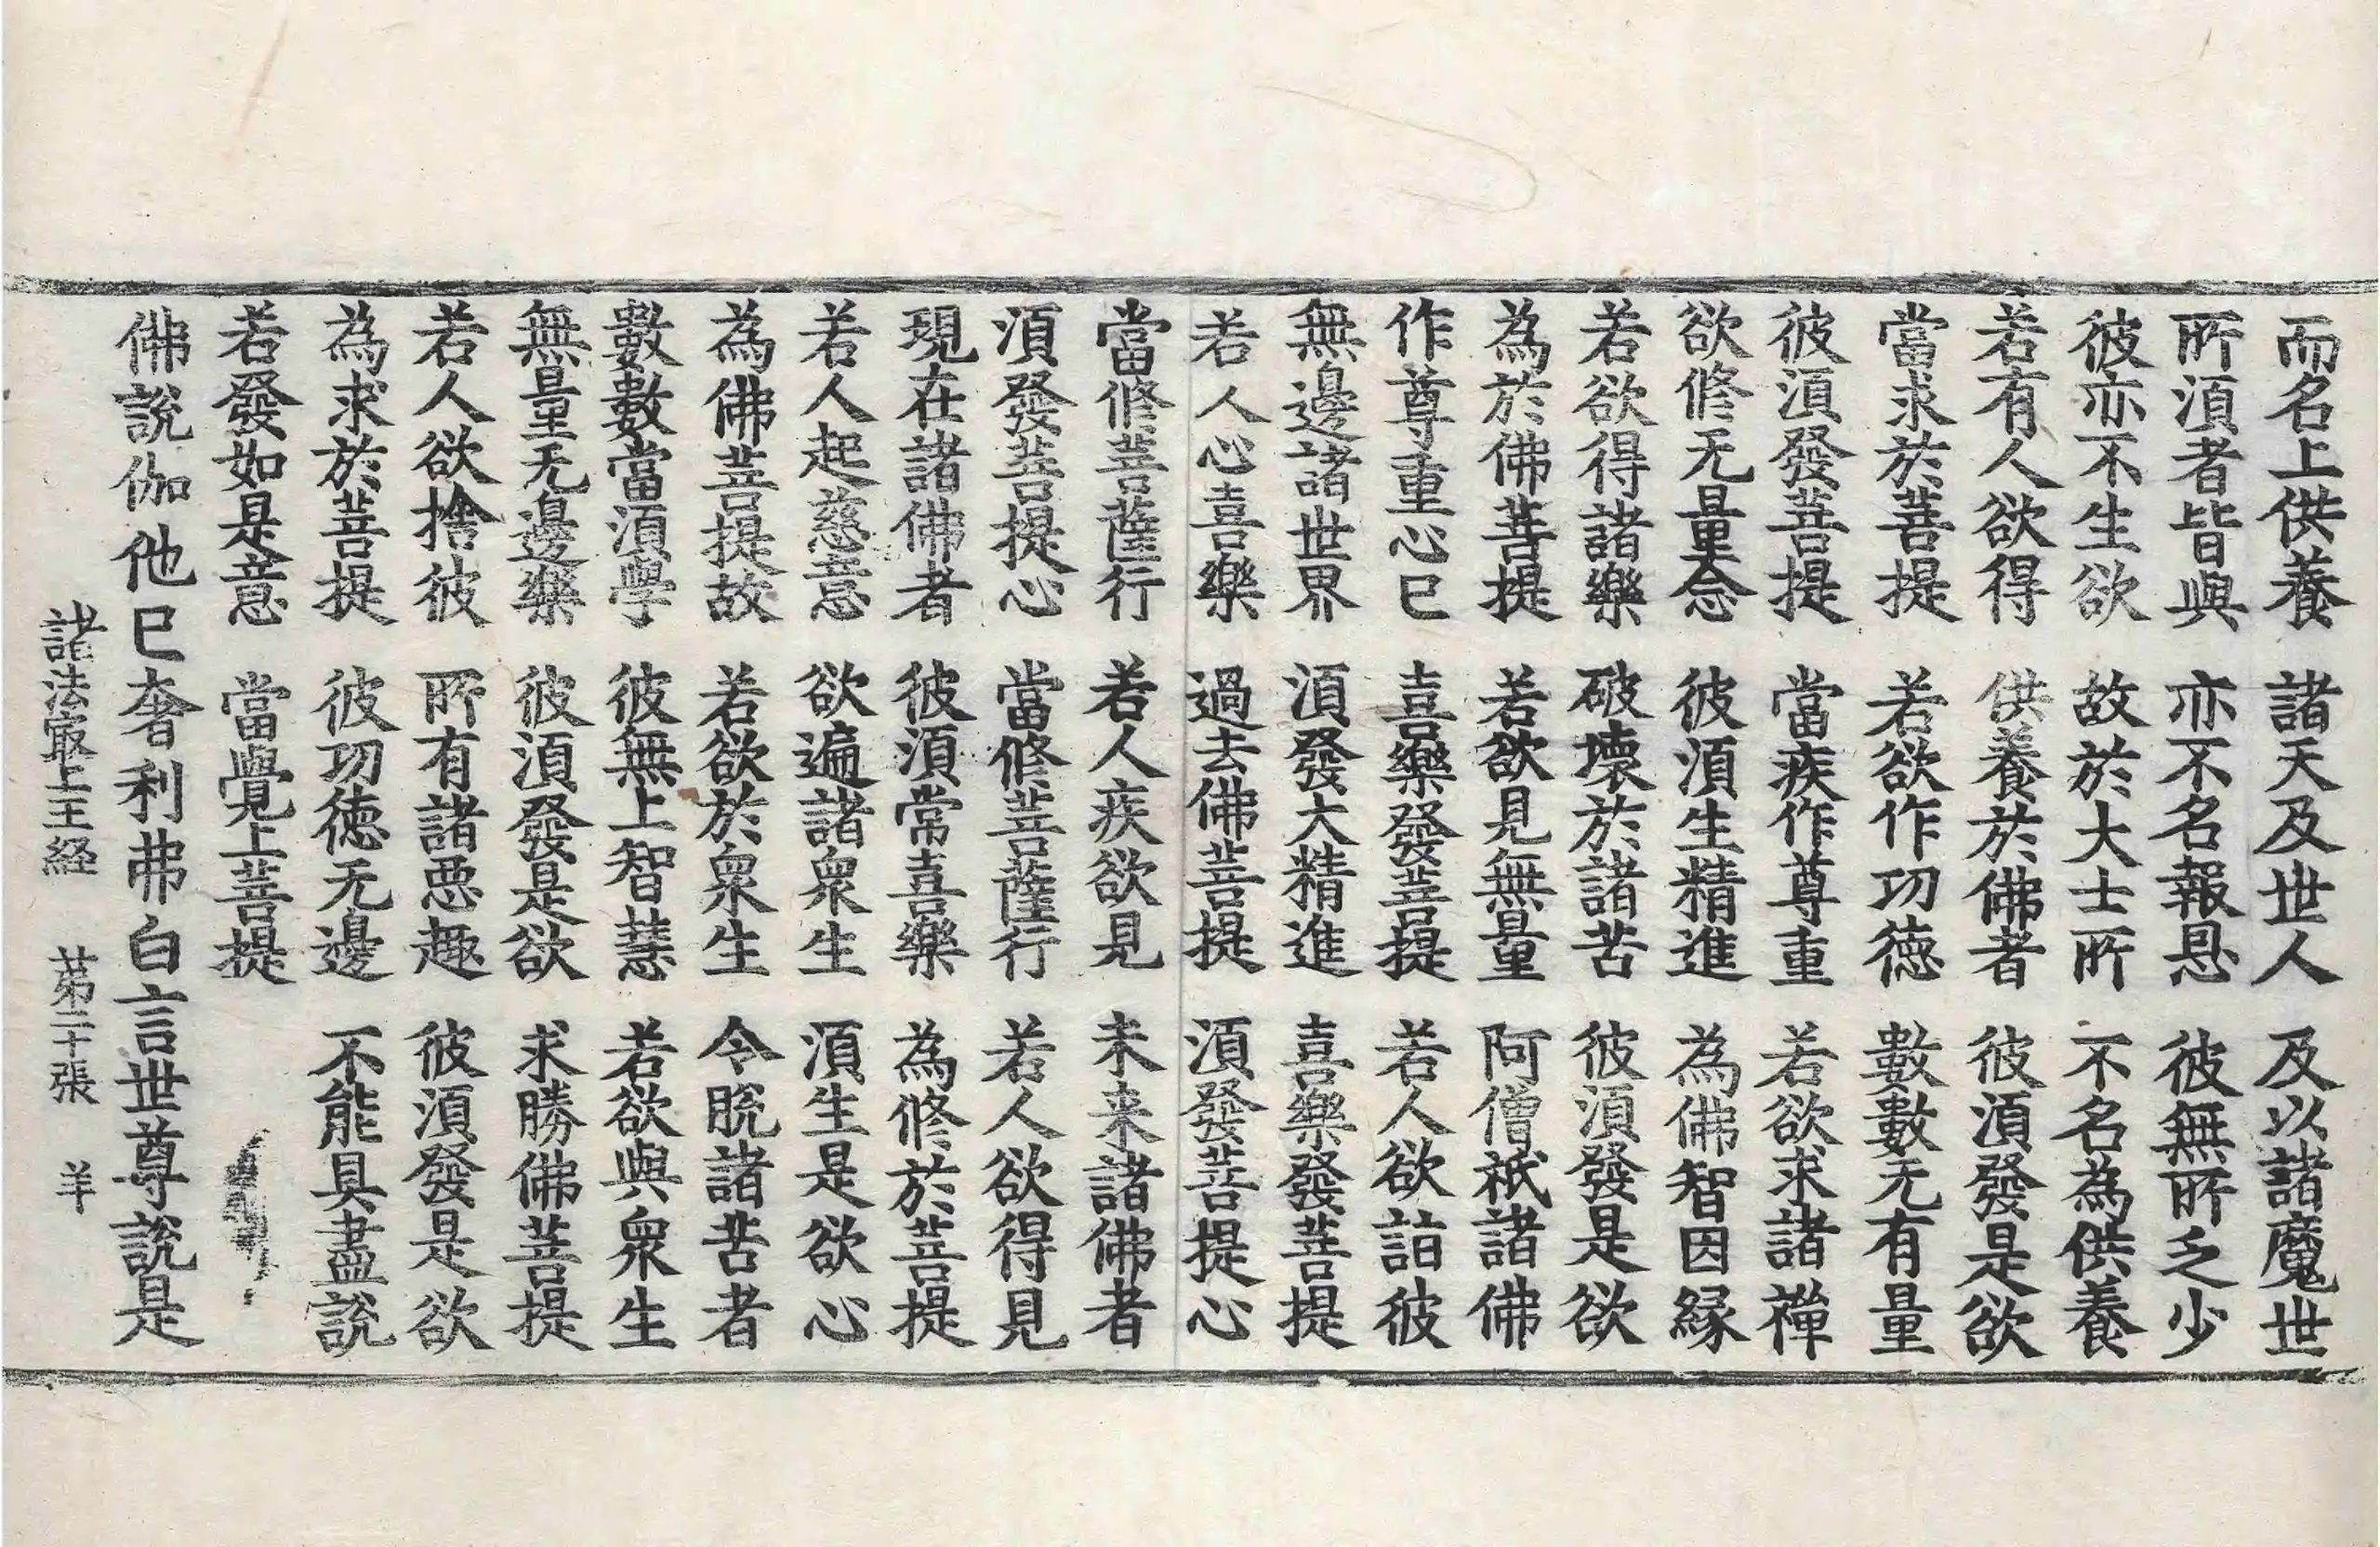 而名上供養　諸天及世人　及以諸魔世
所須者皆與　亦不名報恩　彼無所乏少
彼亦不生欲　故於大士所　不名為供養
若有人欲得　供養於佛者　彼須發是欲
當求於菩提　若欲作功德　數數无有量
彼須發菩提　當疾作尊重　若欲求諸禪
欲修无量念　彼須生精進　為佛智因緣
若欲得諸樂　破壞於諸苦　彼須發是欲
為於佛菩提　若欲見無量　阿僧祇諸佛
作尊重心已　喜樂發菩提　若人欲詣彼
無邊諸世界　須發大精進　喜樂發菩提
若人心喜樂　過去佛菩提　須發菩提心
當修菩薩行　若人疾欲見　未来諸佛者
須發菩提心　當修菩薩行　若人欲得見
現在諸佛者　彼須常喜樂　為修於菩提
若人起慈意　欲遍諸衆生　須生是欲心
為佛菩提故　若欲於衆生　令脫諸苦者
數數當須學　彼無上智慧　若欲與衆生
無量无邊樂　彼須發是欲　求勝佛菩提
若人欲捨彼　所有諸惡趣　彼須發是欲
為求於菩提　彼功德无邊　不能具盡說
若發如是意　當覺上菩提
佛說伽他已奢利弗白言世尊說是
諸法冣上王経　苐二十張　羊